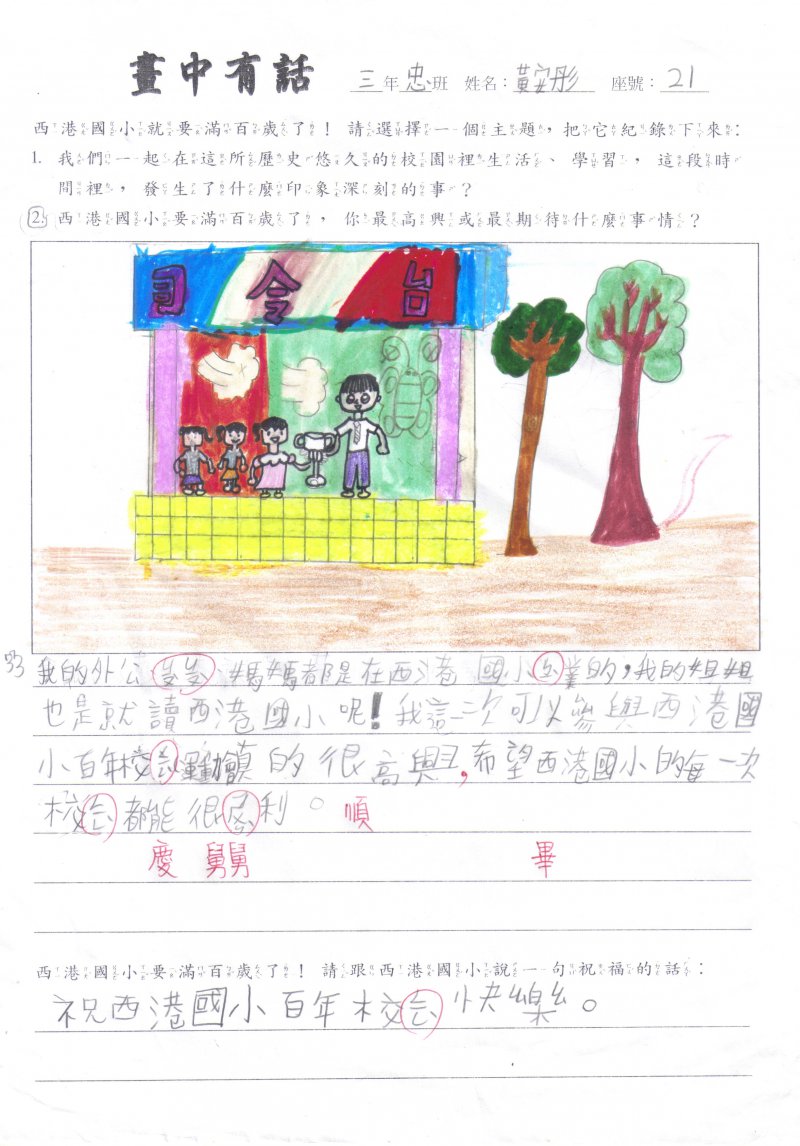 畫中有話 三年忠班 姓名：黃安彤 座號：21
西港國小就要滿百歲了！請選擇一個主題，把它紀錄下來：
1. 我們一起在這所歷史悠久的校園裡生活、學習，這段時
間裡，發生了什麼印象深刻的事？
2. 西港國小要滿百歲了，你最高興或最期待什麼事情？
司令台
我的外公 媽媽都是在西港國小 業的，我的姐姐
也是就讀西港國小呢！我這一次可以參與西港國
小百年校 運動會真的很高興，希望西港國小的每一次
校 都能很 利。 順
慶 舅舅 畢
西港國小要滿百歲了！請跟西港國小說一句祝福的話：
祝西港國小百年校 快樂。